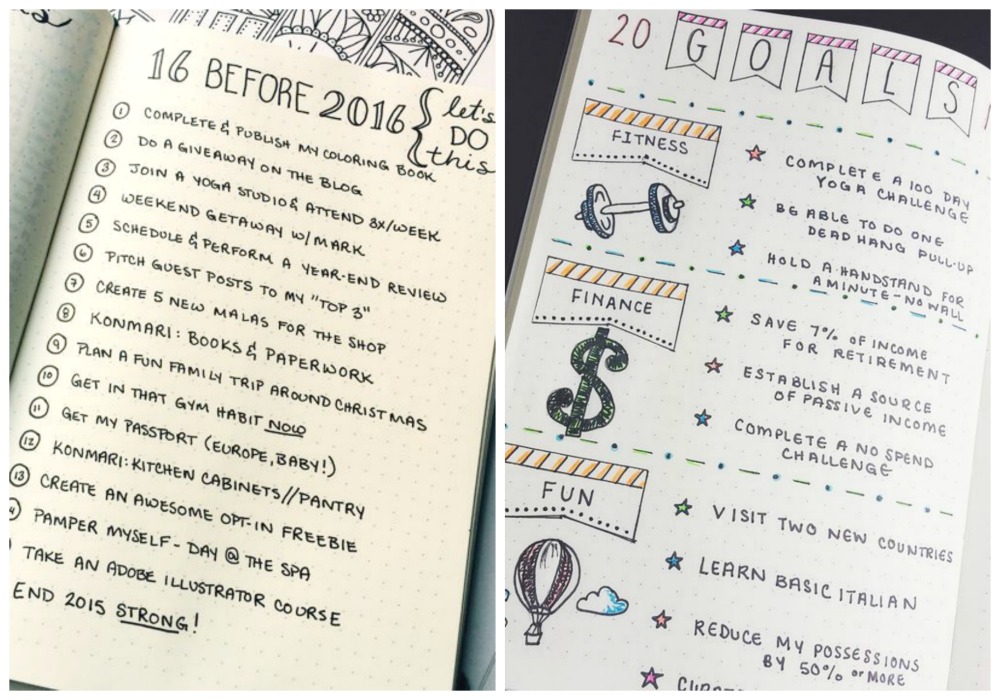 16 BEFORE 2016
let's
DO
this
1 COMPLETE & PUBLISH MY COLORING BOOK
2 DO A GIVEAWAY ON THE BLOG
3 JOIN A YOGA STUDIO & ATTEND 3X/WEEK
4 WEEKEND GETAWAY W/MARK
5 SCHEDULE & PERFORM A YEAR-END REVIEW
6 PITCH GUEST POSTS TO MY "TOP 3"
7 CREATE 5 NEW MALAS FOR THE SHOP
8 KONMARI: BOOKS & PAPERWORK
9 PLAN A FUN FAMILY TRIP AROUND CHRISTMAS
10 GET IN THAT GYM HABIT NOW
11 GET MY PASSPORT (EUROPE, BABY!)
12 KONMARI: KITCHEN CABINETS//PANTRY
13 CREATE AN AWESOME OPT-IN FREEBIE
PAMPER MYSELF - DAY @ THE SPA
TAKE AN ADOBE ILLUSTRATOR COURSE
END 2015 STRONG!
20 GOALS
FITNESS
COMPLETE A 100 DAY
YOGA CHALLENGE
BE ABLE TO DO ONE
DEAD HANG PULL-UP
HOLD A HANDSTAND FOR
A MINUTE - NO WALL
FINANCE
SAVE 7% OF INCOME
FOR RETIREMENT
ESTABLISH A SOURCE
OF PASSIVE INCOME
COMPLETE A NO SPEND
CHALLENGE
FUN
VISIT TWO NEW COUNTRIES
LEARN BASIC ITALIAN
REDUCE MY POSSESSIONS
BY 50% OR MORE